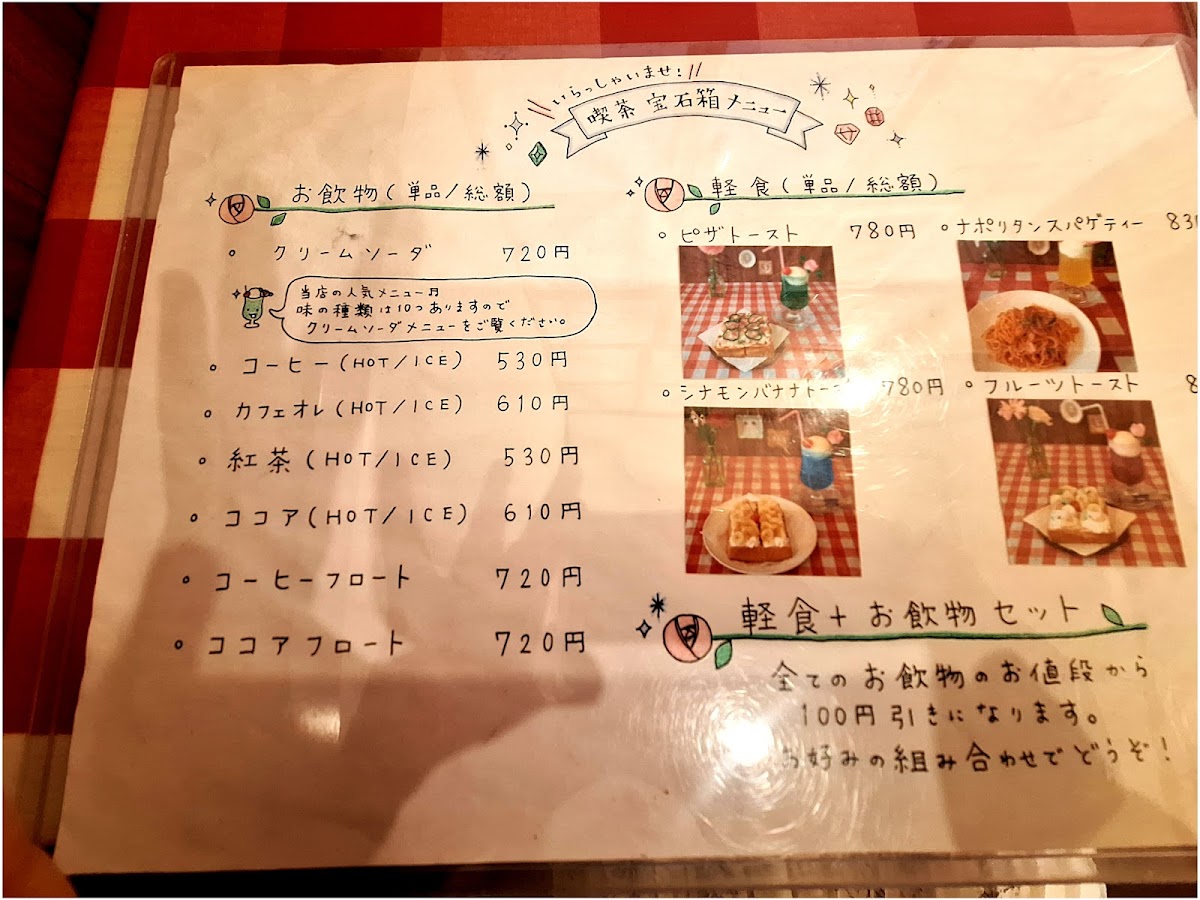 いらっしゃいませ!
喫茶 宝石箱 メニュー
お飲物(単品/総額)
クリームソーダ 720円
当店の人気メニュー
味の種類は10つありますので
クリームソーダメニューをご覧ください。
コーヒー(HOT/ICE) 530円
カフェオレ(HOT/ICE) 610円
紅茶(HOT/ICE) 530円
ココア(HOT/ICE) 610円
コーヒーフロート 720円
ココアフロート 720円
軽食(単品/総額)
ピザトースト 780円
ナポリタンスパゲティー 830
シナモンバナナトースト 780円
フルーツトースト 8
軽食+お飲物セット
全てのお飲物のお値段から
100円引きになります。
お好みの組み合わせでどうぞ!